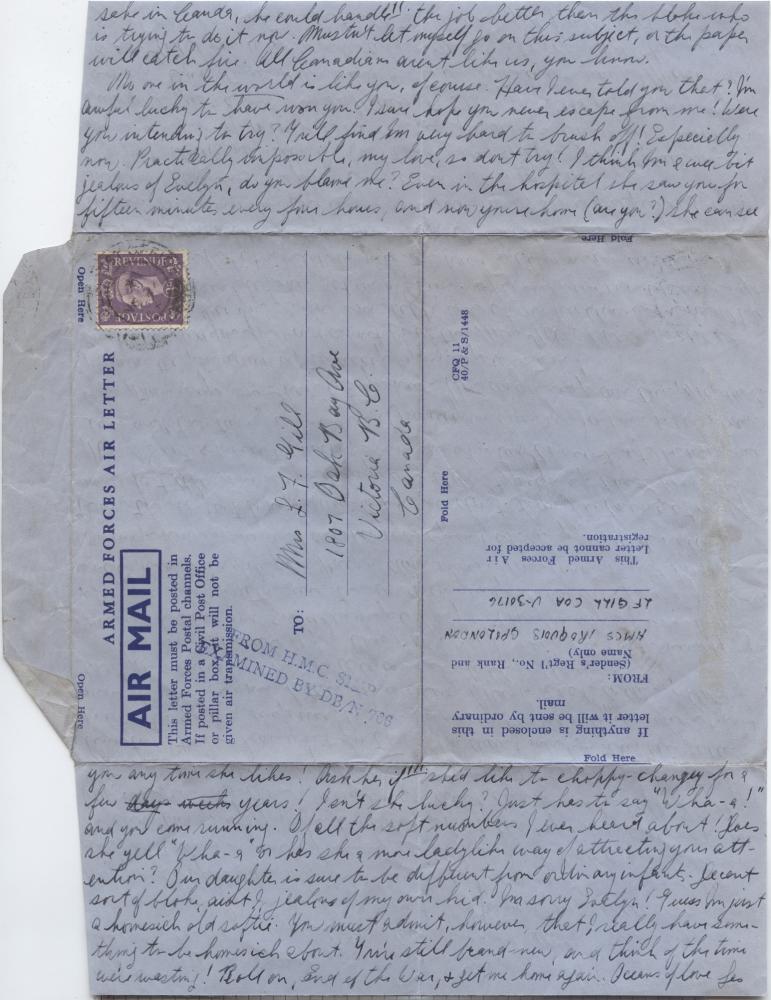 sake in Canada, he could handle!! the job better than the bloke who
is trying to do it now. Mustn't let myself go on this subject, or the paper
will catch fire. All Canadians aren't like us, you know.
No one in the world is like you, of course. Have I ever told you that? I'm
awful lucky to have won you. I sure hope you never escape from me! Were
you intending to try? You'll find I'm very hard to brush off! Especially
now. Practically impossible, my love, so don't try! I think I'm a wee bit
jealous of Evelyn, do you blame me? Even in the hospital she saw you for
fifteen minutes every four hours, and now you're home (are you?) she can see
Fold Here
Open Here
REVENUE
POSTAGE
ARMED FORCES AIR LETTER
AIR MAIL
This letter must be posted in
Armed Forces Postal channels.
If posted in a Civil Post Office
or pillar box it will not be
given air transmission.
Open Here
FROM H.M.C. SHIP
EXAMINED BY DB/N 706
TO:
Mrs L. F. Gill
1807 Oak Bay Ave
Victoria B.C.
Canada
CFQ 11
40/P & S/1448
Fold Here
This Armed Forces Air
Letter cannot be accepted for
registration.
LF GILL COA V-30176
HMCS IROQUOIS GPO LONDON
(Sender's Regt'l No., Rank and
Name only)
FROM:
If anything is enclosed in this
letter it will be sent by ordinary
mail.
Fold Here
you any time she likes! Ask her if she'd like to choppy-changey for a
few days weeks years! Isn't she lucky? Just has to say "Wha-a!"
and you come running. Of all the soft numbers I ever heard about! Does
she yell "Wha-a" or has she a more ladylike way of attracting your att-
ention? Our daughter is sure to be different from ordinary infants. Decent
sort of bloke, aint I, jealous of my own kid. I'm sorry Evelyn! Guess I'm just
a homesick old softie. You must admit, however, that I really have some-
thing to be homesick about. You're still brand-new, and think of the time
we're wasting! Roll on, End of the War, & get me home again. Oceans of love Les